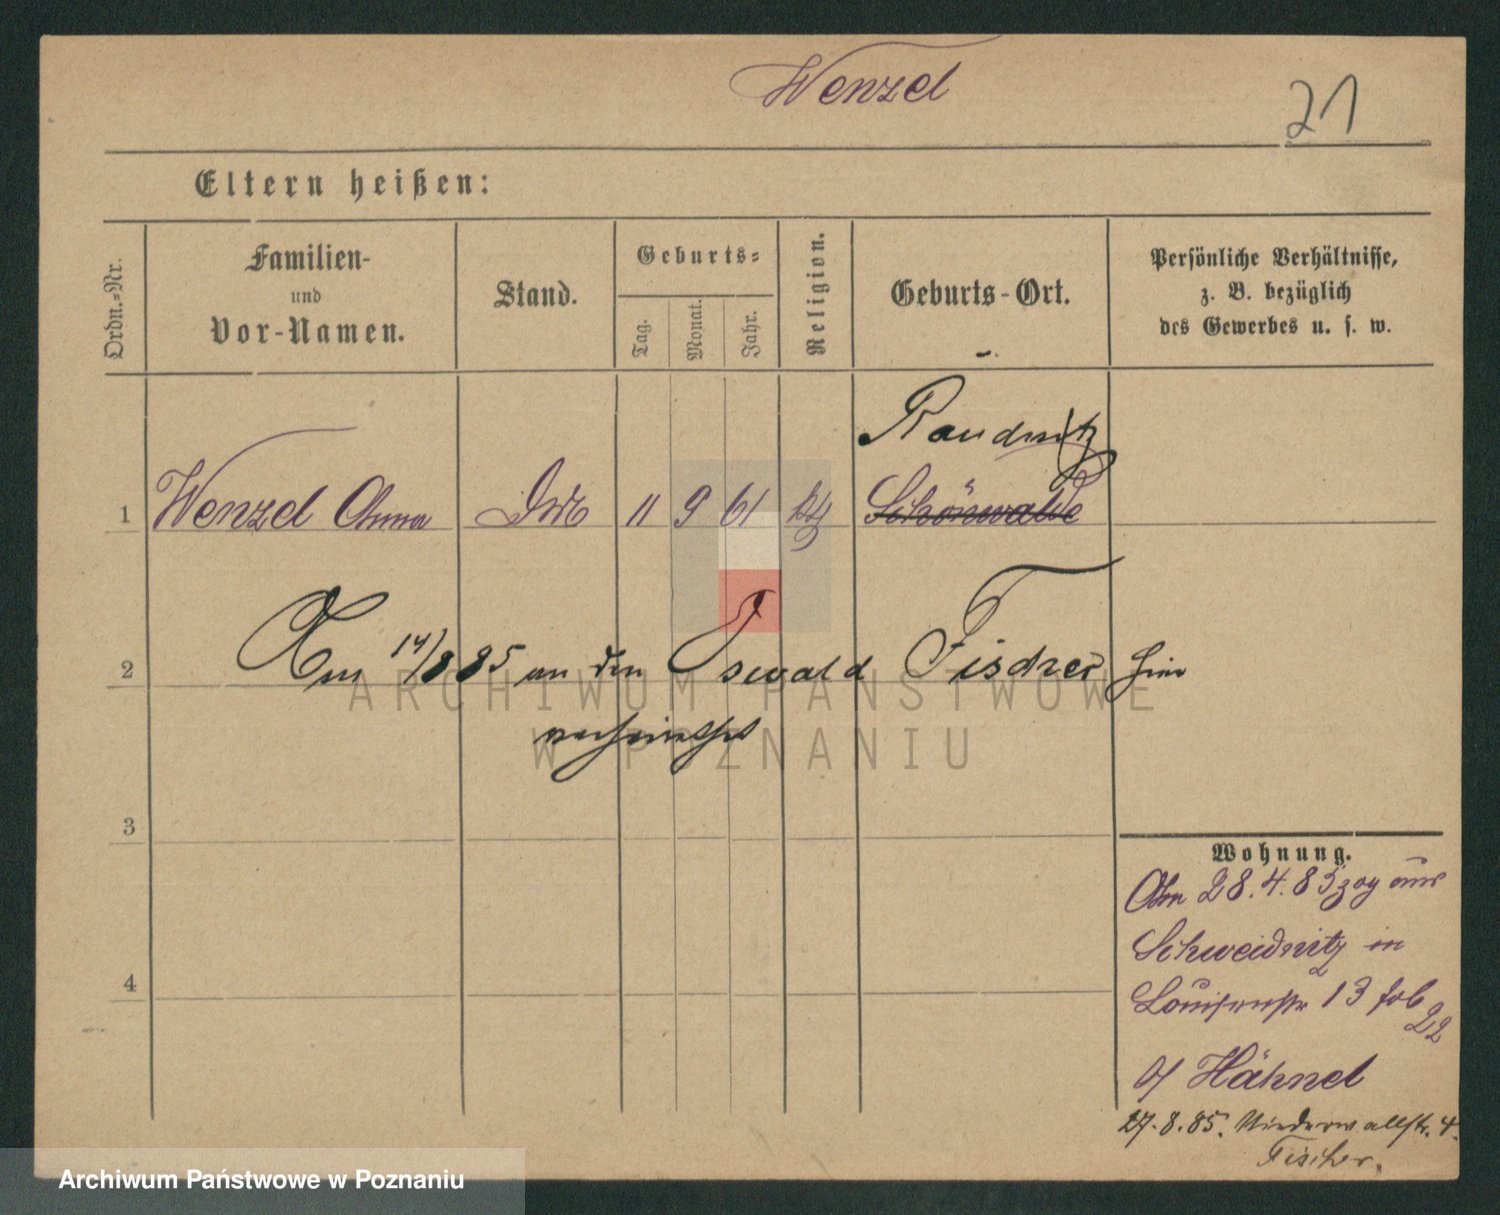 Wenzel
21
Eltern heißen:
Ordn.-Nr.
Familien-
und
Vor-Namen.
Stand.
Geburts-
Tag.
Monat.
Jahr.
Religion.
Geburts-Ort.
Persönliche Verhältnisse,
z. B. bezüglich
des Gewerbes u. s. w.
Raudnitz
1 Wenzel Anna 11 9 61 Schönwalde
2 Am 14/8 85 an den Oswald Fischer hier
verheirathet
3
4
Wohnung.
Am 28.4.85 zog aus
Schweidnitz in
Louisenstr 13
22
Hähnel
27.8.85. Niederwallstr. 4.
Fischer.
ARCHIWUM PAŃSTWOWE
W POZNANIU
Archiwum Państwowe w Poznaniu